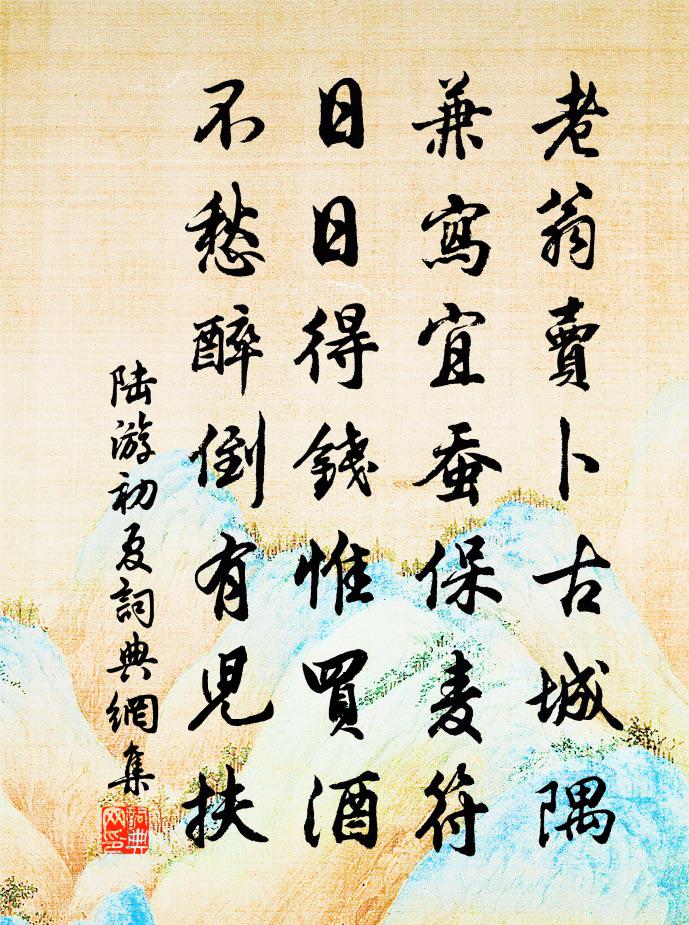 老翁賣卜古城隅
兼寫宜蚕保麦符
日日得錢惟買酒
不愁醉倒有児扶
陆游初夏詞典網集
詞典网印